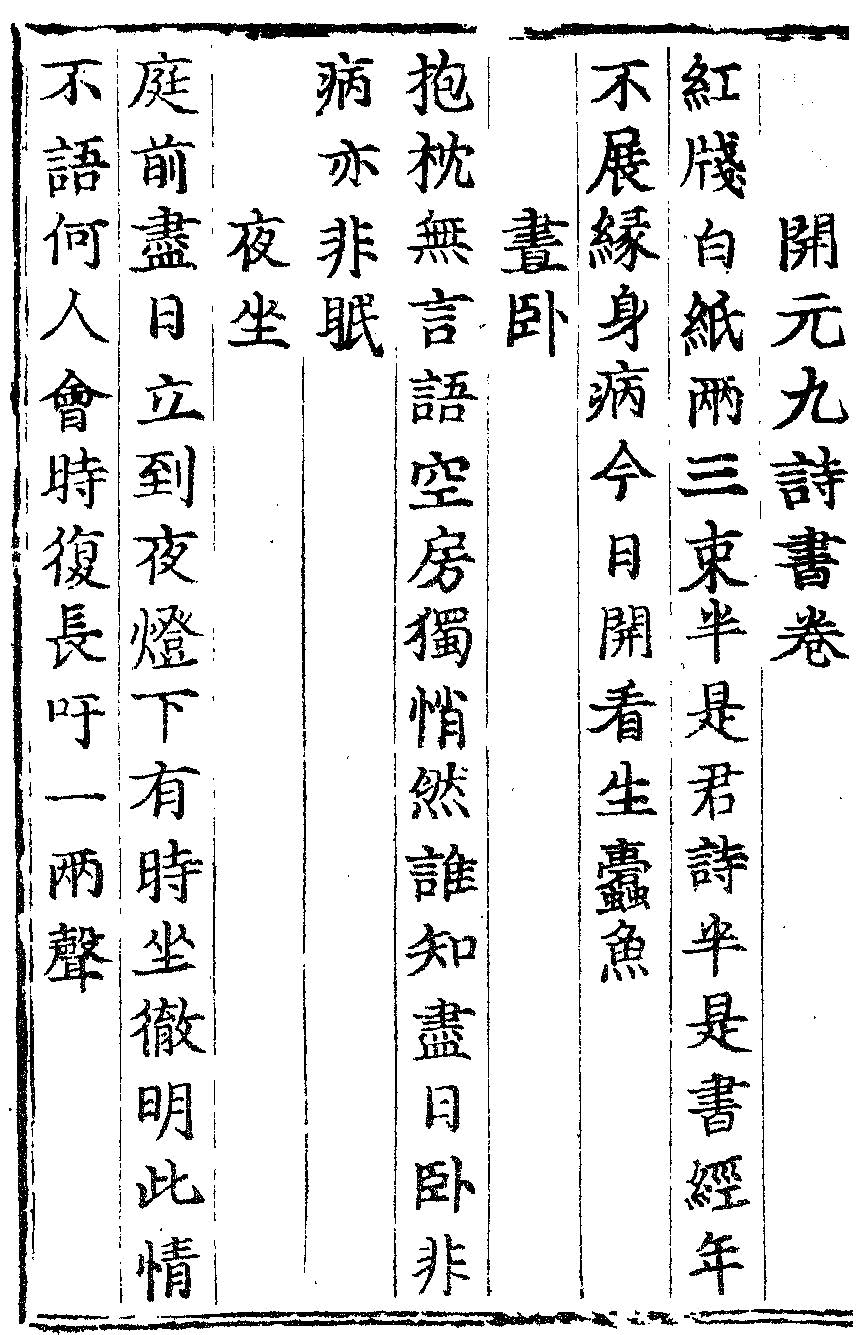 開元九詩書卷
紅牋白紙兩三束半是君詩半是書經年
不展緣身病今日開看生蠹魚
晝臥
抱枕無言語空房獨悄然誰知盡日臥非
病亦非眠
夜坐
庭前盡日立到夜燈下有時坐徹明此情
不語何人會時復長吁一兩聲